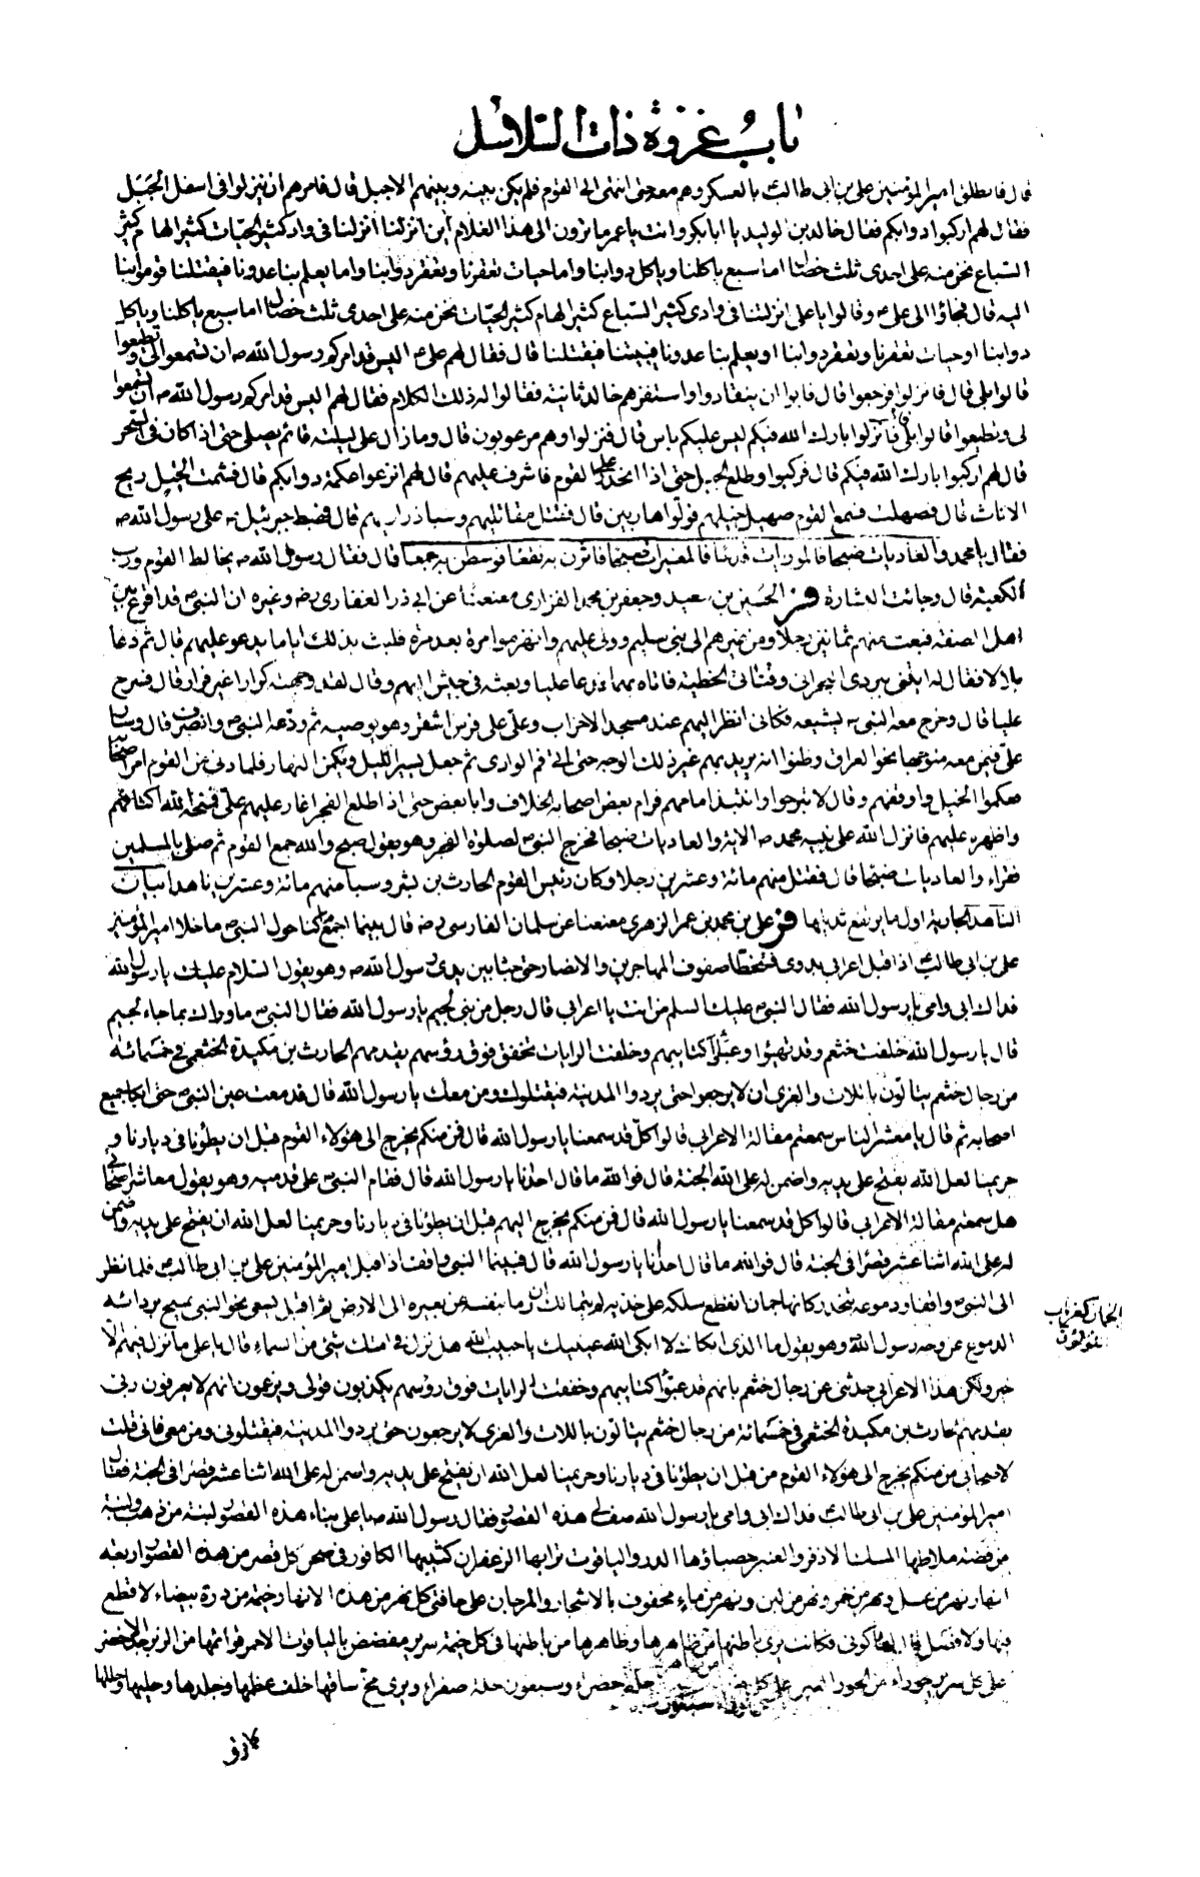 باب غزوة ذات السلاسل
قال فانطلق امير المؤمنين على بن ابى طالب بالعسكر وهم معه حتى انتهى الى القوم فلم يكن بينه وبينهم الا جبل قال فامرهم ان ينزلوا فى اسفل الجبل
فقال لهم اركبوا دوابكم فقال خالد بن الوليد يا ابا بكر وانت يا عمر ما ترون الى هذا الغلام اين انزلنا انزلنا فى واد كثير الحيات كثير الهام كثير
السباع نحن منه على احدى ثلث خصال اما سبع ياكلنا وياكل دوابنا واما حيات تعقرنا وتعقر دوابنا واما يعلم بنا عدونا فيقتلنا قوموا بنا
اليه قال فجاؤا الى على ع وقالوا يا على انزلتنا فى وادى كثير السباع كثير الهام كثير الحيات نحن منه على احدى ثلث خصال اما سبع ياكلنا وياكل
دوابنا او حيات تعقرنا وتعقر دوابنا او يعلم بنا عدونا فيبيتنا فيقتلنا قال فقال لهم على ع اليس قد امركم رسول الله ص ان تسمعوا الى وتطيعوا
قالوا بلى قال فانزلوا فرجعوا قال فابوا ان ينقادوا واستفزهم خالد ثانية فقالوا له ذلك الكلام فقال لهم اليس قد امركم رسول الله ص ان تسمعوا
لى وتطيعوا قالوا بلى قال فانزلوا بارك الله فيكم ليس عليكم باس قال فنزلوا وهم مرعوبون قال وما زال على ليلته قائم يصلى حتى اذا كان فى السحر
قال لهم اركبوا بارك الله فيكم قال فركبوا وطلع الجبل حتى اذا انحدر على القوم فاشرف عليهم قال لهم انزعوا عكمة دوابكم قال فشمت الخيل ريح
الاناث قال فصهلت فسمع القوم صهيل خيلهم فولوا هاربين قال فقتل مقاتليهم وسبا ذراريهم قال فهبط جبرئيل ع على رسول الله ص
فقال يا محمد والعاديات ضبحا فالموريات قدحا فالمغيرات صبحا فاثرن به نقعا فوسطن به جمعا قال فقال رسول الله ص يخالط القوم ورب
الكعبة قال وجائت البشارة فر الحسين بن سعيد وجعفر بن محمد الفزارى معنعنا عن ابى ذر الغفارى رض وغيره ان النبى ص قد اقرع بين
اهل الصفة فبعث منهم ثمانين رجلا ومن غيرهم الى بنى سليم وولى عليهم وانهزموا مرة بعد مرة فلبث بذلك اياما يدعو عليهم قال ثم دعا
بلالا فقال له ايتنى ببردى النجرانى وقناتى الخطية فاتاه بهما فدعا عليا وبعثه فى جيش اليهم وقال لقد وجهته كرارا غير فرار قال فسرح
عليا قال وخرج معه النبى ص يشيعه فكانى انظر اليهم عند مسجد الاحزاب وعلى على فرس اشقر وهو يوصيه ثم ودعه النبى ص وانصرف قال وسار
على فيمن معه متوجها نحو العراق وظنوا انه يريد بهم غير ذلك الوجه حتى اتى فم الوادى ثم جعل يسير الليل ويكمن النهار فلما دنى من القوم امر اصحابه
فعكموا الخيل واوقفهم وقال لا تبرحوا وانتبذ امامهم فرام بعض اصحابه الخلاف وابا بعض حتى اذا طلع الفجر اغار عليهم على فمنحه الله اكتافهم
واظهره عليهم فانزل الله على نبيه محمد ص الاية والعاديات ضبحا فخرج النبى ص لصلوة الفجر وهو يقول صبح والله جمع القوم ثم صلى بالمسلمين
فقراء والعاديات ضبحا قال فقتل منهم مائة وعشرين رجلا وكان رئيس القوم الحارث بن بشر وسبا منهم مائة وعشرين ناهدا بيان
الناهد الجارية اول ما يرتفع ثديها فر على بن محمد بن عمر الزهرى معنعنا عن سلمان الفارسى رض قال بينما اجمع ما كنا حول النبى ص ما خلا امير المؤمنين
على بن ابى طالب اذ اقبل اعرابى بدوى فتخطا صفوف المهاجرين والانصار حتى جثا بين يدى رسول الله ص وهو يقول السلام عليك يا رسول الله
فداك ابى وامى يا رسول الله فقال النبى ص عليك السلم من انت يا اعرابى قال رجل من بنى لجيم يا رسول الله فقال النبى ص ما وراك بما جاء لجيم
قال يا رسول الله خلفت خثعم وقد تهيؤا وعبؤا كتائبهم وخلفت الرايات تخفق فوق رؤسهم يقدمهم الحارث بن مكيدة الخثعمى فى خمسمائة
من رجال خثعم يتالون باللات والعزى ان لا يرجعوا حتى يردوا المدينة فيقتلوك ومن معك يا رسول الله قال فدمعت عين النبى ص حتى ابكا جميع
اصحابه ثم قال يا معشر الناس سمعتم مقالة الاعرابى قالوا كل قد سمعنا يا رسول الله قال فمن منكم يخرج الى هؤلاء القوم قبل ان يطؤنا فى ديارنا و
حريمنا لعل الله يفتح على يديه واضمن له على الله الجنة قال فوالله ما قال احد انا يا رسول الله قال فقام النبى ص على قدميه وهو يقول معاشر اصحابى
هل سمعتم مقالة الاعرابى قالوا كل قد سمعنا يا رسول الله قال فمن منكم يخرج اليهم قبل ان يطؤنا فى ديارنا وحريمنا لعل الله ان يفتح على يديه واضمن
له على الله اثنا عشر قصرا فى الجنة قال فوالله ما قال احد انا يا رسول الله قال فبينما النبى ص واقف اذ اقبل امير المؤمنين على بن ابى طالب ع فلما نظر
الى النبى ص واقفا ودموعه تنحدر كانها جمان انقطع سلكه على خديه لم يتمالك ان رما بنفسه عن بعيره الى الارض ثم اقبل يسعى نحو النبى يمسح بردائه
الدموع عن وجه رسول الله وهو يقول ما الذى ابكاك لا ابكى الله عينيك يا حبيب الله هل نزل فى امتك شئ من السماء قال يا على ما نزل فيهم الا
خير ولكن هذا الاعرابى حدثنى عن رجال خثعم بانهم قد عبؤا كتائبهم وخفقت الرايات فوق رؤسهم يكذبون قولى ويزعمون انهم لا يعرفون ربى
يقدمهم الحارث بن مكيدة الخثعمى فى خمسمائة من رجال خثعم يتالون باللات والعزى لا يرجعون حتى يردوا المدينة فيقتلونى ومن معى فانى قلت
لاصحابى من منكم يخرج الى هؤلاء القوم من قبل ان يطؤنا فى ديارنا وحريمنا لعل الله ان يفتح على يديه واضمن له على الله اثنا عشر قصرا فى الجنة فقال
امير المؤمنين على بن ابى طالب فداك ابى وامى يا رسول الله صف لى هذه القصور فقال رسول الله ص يا على بناء هذه القصور لبنة من ذهب ولبنة
من فضة ملاطها المسك الاذفر والعنبر حصباؤها الدر والياقوت ترابها الزعفران كثيبها الكافور فى صحن كل قصر من هذه القصور اربعة
انهار نهر من عسل ونهر من خمر ونهر من لبن ونهر من ماء محفوف بالاشجار والمرجان على حافتى كل نهر من هذه الانهار وخيمة من درة بيضاء لا قطع
فيها ولا فصل قال لها كونى فكانت يرى باطنها من ظاهرها وظاهرها من باطنها فى كل خيمة سرير مفضض بالياقوت الاحمر قوائمها من الزبرجد الاخضر
على كل سرير حوراء من الحور العين على كل حلة خضراء وسبعون حلة صفراء ويرى مخ ساقها خلف عظمها وجلدها وحليها وحللها
سبعون
الجمان كغراب
اللؤلؤ ق
كما ترى